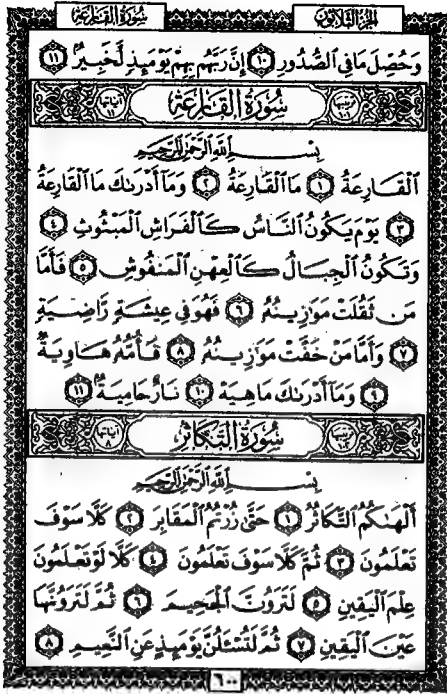 سُورَةُ القَارِعَة الجُزْءُ الثَّلَاثُونَ
وَحُصِّلَ مَا فِي ٱلصُّدُورِ ١٠ إِنَّ رَبَّهُم بِهِمْ يَوْمَئِذٍ لَّخَبِيرٌۢ ١١
ترتيبها ١٠١ سُورَةُ القَارِعَةِ آياتها ١١
بِسْمِ ٱللَّهِ ٱلرَّحْمَٰنِ ٱلرَّحِيمِ
ٱلْقَارِعَةُ ١ مَا ٱلْقَارِعَةُ ٢ وَمَآ أَدْرَىٰكَ مَا ٱلْقَارِعَةُ
٣ يَوْمَ يَكُونُ ٱلنَّاسُ كَٱلْفَرَاشِ ٱلْمَبْثُوثِ ٤
وَتَكُونُ ٱلْجِبَالُ كَٱلْعِهْنِ ٱلْمَنفُوشِ ٥ فَأَمَّا
مَن ثَقُلَتْ مَوَٰزِينُهُۥ ٦ فَهُوَ فِي عِيشَةٍ رَّاضِيَةٍ
٧ وَأَمَّا مَنْ خَفَّتْ مَوَٰزِينُهُۥ ٨ فَأُمُّهُۥ هَاوِيَةٌ
٩ وَمَآ أَدْرَىٰكَ مَا هِيَهْ ١٠ نَارٌ حَامِيَةٌۢ ١١
ترتيبها ١٠٢ سُورَةُ التَّكَاثُرِ آياتها ٨
بِسْمِ ٱللَّهِ ٱلرَّحْمَٰنِ ٱلرَّحِيمِ
أَلْهَىٰكُمُ ٱلتَّكَاثُرُ ١ حَتَّىٰ زُرْتُمُ ٱلْمَقَابِرَ ٢ كَلَّا سَوْفَ
تَعْلَمُونَ ٣ ثُمَّ كَلَّا سَوْفَ تَعْلَمُونَ ٤ كَلَّا لَوْ تَعْلَمُونَ
عِلْمَ ٱلْيَقِينِ ٥ لَتَرَوُنَّ ٱلْجَحِيمَ ٦ ثُمَّ لَتَرَوُنَّهَا
عَيْنَ ٱلْيَقِينِ ٧ ثُمَّ لَتُسْـَٔلُنَّ يَوْمَئِذٍ عَنِ ٱلنَّعِيمِ ٨
٦٠٠